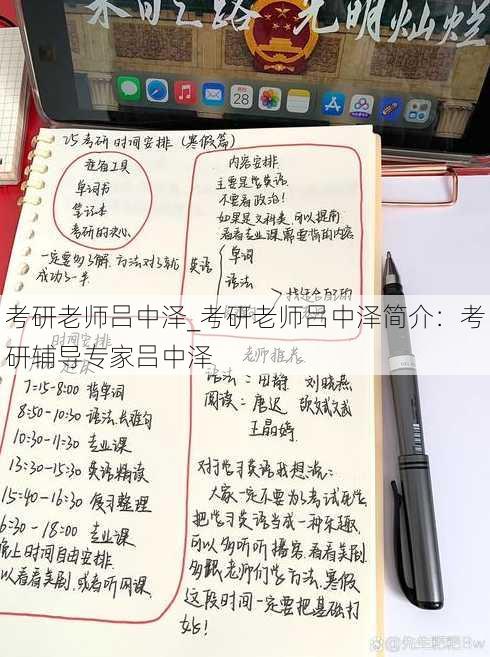 来百之路 光明灿烂
28
25考研时间安排（寒假篇）
准备工具
单词书
笔记本
考研的决心
一定要多了解，方法对了就
成功了一半
内容安排
主要是学英语
不要看政治！
如果是文科类，可以提前
看看专业课需要背的内容
英语
单词
语法
找适合自己的
考研老师吕中泽_考研老师吕中泽简介：考
研辅导专家吕中泽
时间安排
7:15-8:00 背单词
8:50-10:30 语法，长难句
10:30-11:30 专业课
13:30-15:30 英语精读
15:40-16:30 复习整理
16:30-18:00 专业课
晚上时间自由安排
可以看看美剧，或者听网课
老师推荐
语法：田静 刘晓燕
阅读：唐迟 颉斌斌
王晶婷
对于学习英语我想说：
大家一定不要为了考试死学，
把学习英语当成一种乐趣，
可以多听听播客，看看美剧
多跟老师们学方法，寒假
这段时间一定要把基础打
好！